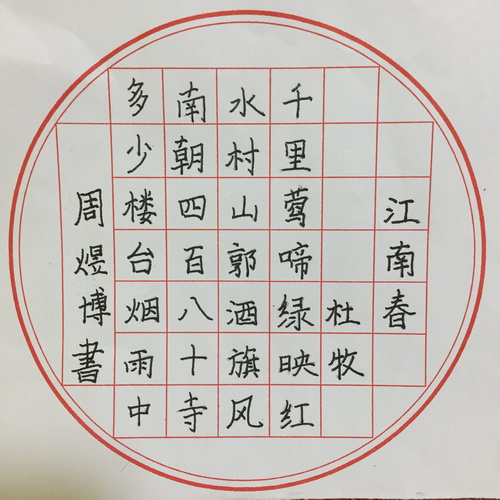 江南春
杜牧
千里莺啼绿映红
水村山郭酒旗风
南朝四百八十寺
多少楼台烟雨中
周煜博書